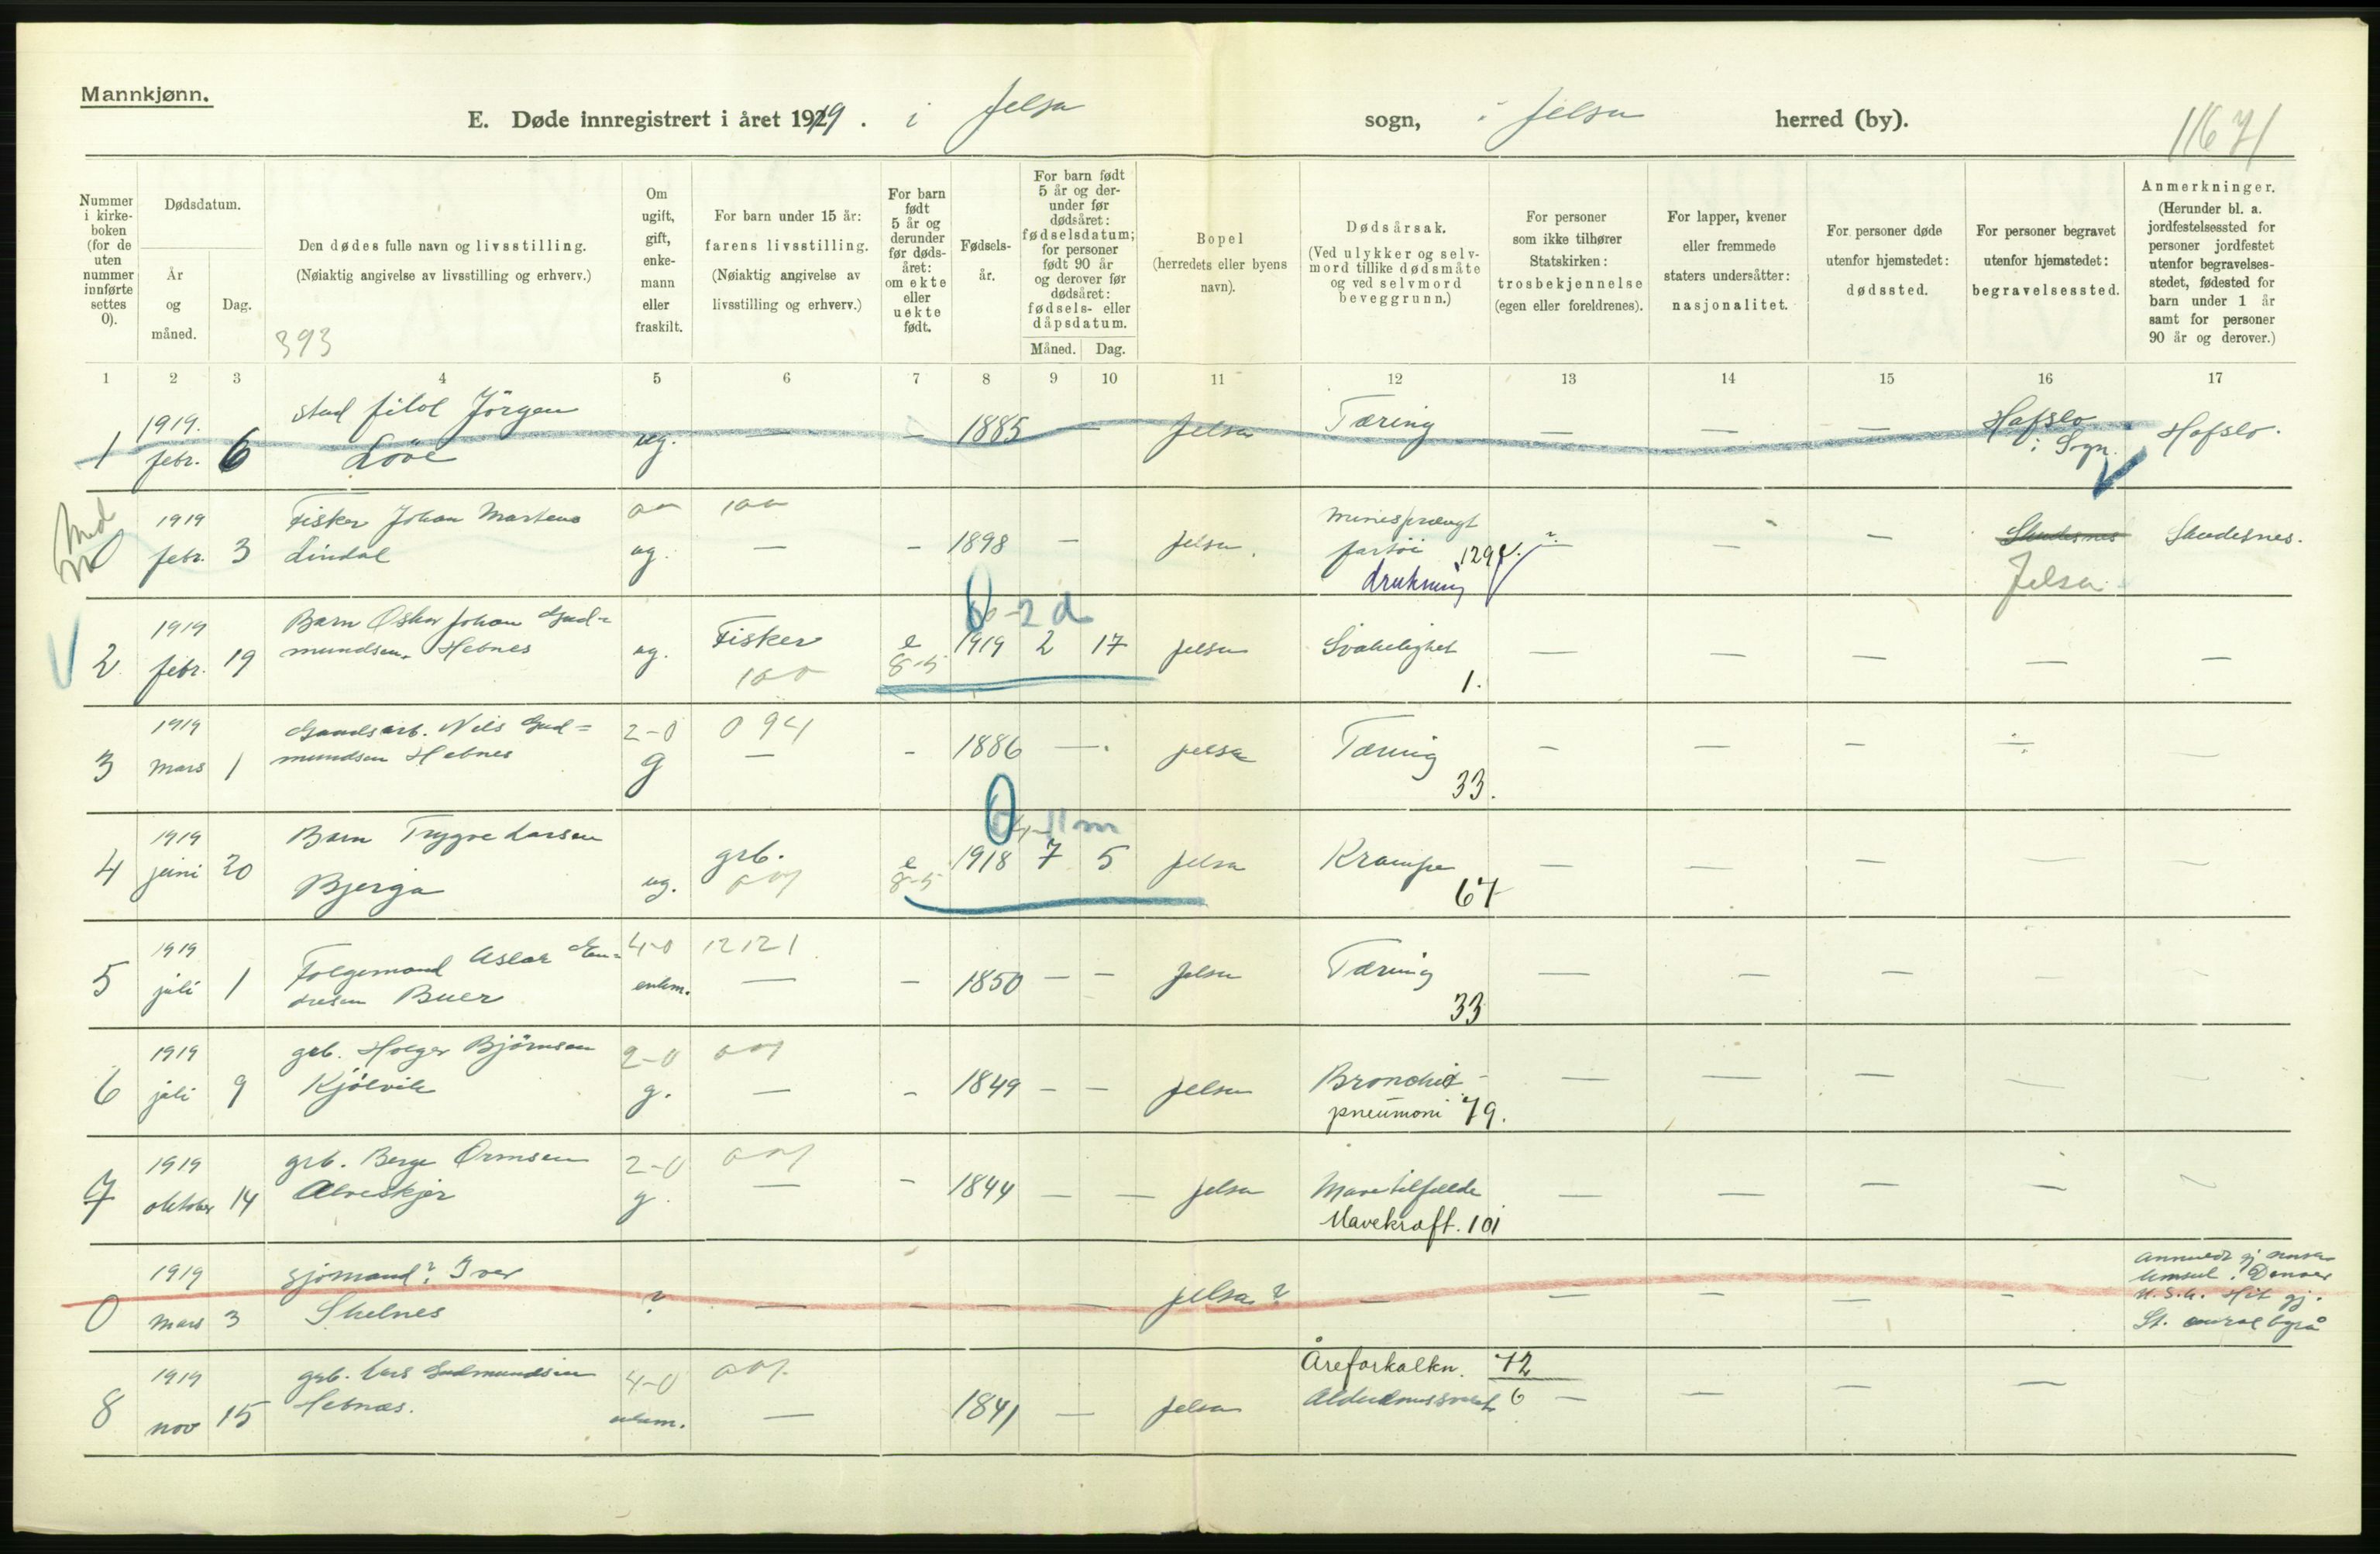 Mannkjønn.
E. Døde innregistrert i året 1919. i Jelsa sogn, i Jelsa herred (by).
11671
Nummer i kirke-boken (for de uten nummer innførte settes 0).
Dødsdatum.
År og måned.
Dag.
Den dødes fulle navn og livsstilling.
(Nøiaktig angivelse av livsstilling og erhverv.)
393
Om ugift, gift, enke-mann eller fraskilt.
For barn under 15 år: farens livsstilling.
(Nøiaktig angivelse av livsstilling og erhverv.)
For barn født 5 år og derunder før døds-året: om ekte eller uekte født.
Fødsels-år.
For barn født 5 år og der-under før dødsåret: fødselsdatum; for personer født 90 år og derover før dødsåret: fødsels- eller dåpsdatum.
Måned. Dag.
Bopel
(herredets eller byens navn).
Dødsårsak.
(Ved ulykker og selv-mord tillike dødsmåte og ved selvmord beveggrunn.)
For personer som ikke tilhører Statskirken: trosbekjennelse (egen eller foreldrenes).
For lapper, kvener eller fremmede staters undersåtter: nasjonalitet.
For personer døde utenfor hjemstedet: dødssted.
For personer begravet utenfor hjemstedet: begravelsessted.
Anmerkninger.
(Herunder bl. a. jordfestelsessted for personer jordfestet utenfor begravelses-stedet, fødested for barn under 1 år samt for personer 90 år og derover.)
1 2 3 4 5 6 7 8 9 10 11 12 13 14 15 16 17
1 1919. febr. 6 stud filol Jörgen Löve ug. — - 1885 — Jelsa Tæring — — — Hafslo i Sogn. Hafslo.
1919 febr. 3 Fisker Johan Martens Lindal ug. — - 1898 — Jelsa. Minesprængt fartöi 129 drukning — — — Skudesnes Jelsa Skudesnes.
2 1919 febr. 19 Barn Oskar Johan Gud=
mundsen, Hebnes ug. Fisker 100 e 8-5 0-2 d 1919 2 17 Jelsa Svakelighet 1. — — — — —
3 1919 Mars 1 Gaardsarb. Nils Gud=
mundsen Hebnes 2-0 g 094 — - 1886 — Jelsa Tæring 33. - — — —
4 1919 juni 20 Barn Trygve Larsen
Bjerga ug. grb. e 8-5 11 m 1918 7 5 Jelsa Krampe 67 — — — — —
5 1919 juli 1 Folgemand Aslak En=
dresen Buer 4-0 enkm. 12121 — - 1850 — — Jelsa Tæring 33 — — — — —
6 1919 juli 9 grb. Holger Björnsen
Kjölvik 2-0 g. — - 1849 — — Jelsa Bronchit -
pneumoni 79. — — — — —
7 1919 oktober 14 grb. Berge Ormsen
Alveskjer 2-0 g. — - 1844 — — Jelsa Mavetilfælde
Mavekræft. 101 — — — —
0 1919 Mars 3 Sjömand? Iver
Skelnes ? — - — — Jelsa? — — — — - Anmeldt gj. norsk
U.S.A. Hit gj.
St.
8 1919 nov 15 grb. Lars Gudmundsen
Hebnæs. 4-0 enkem. — 1841 — Jelsa Åreforkalkn. 72
6 — — — —